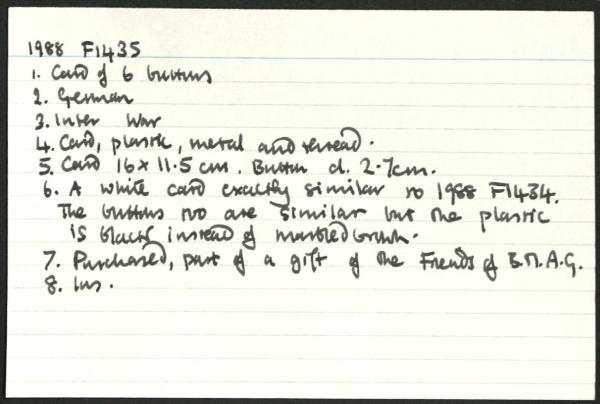 1988 F1435
1. Card of 6 buttons
2. German
3. Inter War
4. Card, plastic, metal and thread.
5. Card 16 x 11.5 cm. Button d. 2.7cm.
6. A white card exactly similar to 1988 F1434.
The buttons too are similar but the plastic
is black instead of marbled brown.
7. Purchased, part of a gift of the Friends of B.M.A.G.
8. Ins.